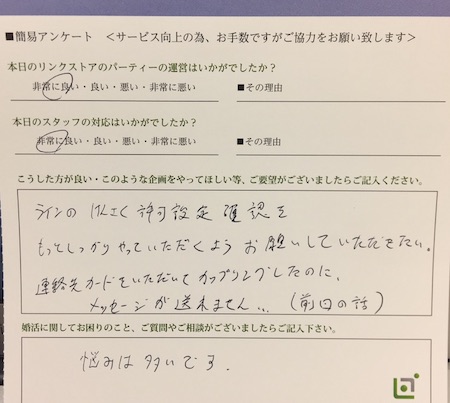 ■簡易アンケート <サービス向上の為、お手数ですがご協力をお願い致します>
本日のリンクストアのパーティーの運営はいかがでしたか?
非常に良い・良い・悪い・非常に悪い ■その理由
本日のスタッフの対応はいかがでしたか?
非常に良い・良い・悪い・非常に悪い ■その理由
こうした方が良い・このような企画をやってほしい等、ご要望がございましたらご記入ください。
ラインの 許可設定 確認を
もっとしっかりやっていただくよう お願いしていただきたい。
連絡先カードをいただいてカップリングしたのに、
メッセージが送れません... (前回の話)
婚活に関してお困りのこと、ご質問やご相談がございましたらご記入下さい。
悩みは多いです.